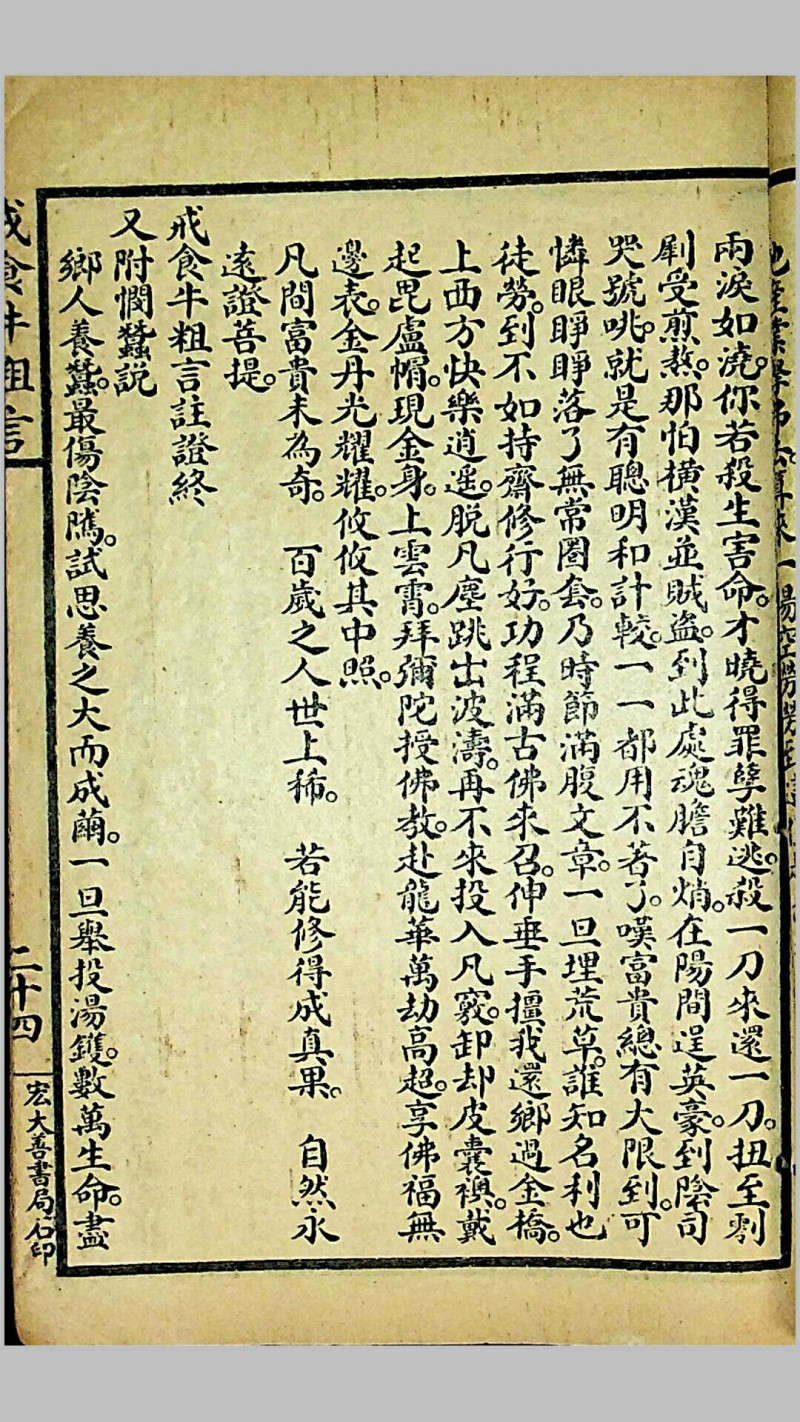 兩淚如澆。你若殺生害命。才曉得罪孽難逃。殺一刀來還一刀。扭至剩
剮受煎熬。那怕橫漢並賊盜。到此處魂膽自焇。在陽間逞英豪。到陰司
哭號咷。就是有聰明和計較。一一都用不著了。嘆富貴總有大限到。可
憐眼睜睜落了無常圈套。乃時節滿腹文章。一旦埋荒草。誰知名利也
徒勞。到不如持齋修行好。功程滿古佛來召。伸垂手擡我還鄉過金橋。
上西方快樂逍遥。脱凡塵跳出波濤。再不來投入凡竅。卸却皮囊襖。戴
起毘盧帽。現金身。上雲霄。拜彌陀授佛教。赴龍華萬劫高超。享佛福無
邊表。金丹光耀耀。攸攸其中照。
凡間富貴未為奇。 百歲之人世上稀。 若能修得成真果。 自然永
遠證菩提。
戒食牛粗言註證終
又附憫蠶説
鄉人養蠶。最傷陰隲。試思養之大而成繭。一旦舉投湯鑊。數萬生命。盡
戒食牛粗言
二十四
宏大善書局石印